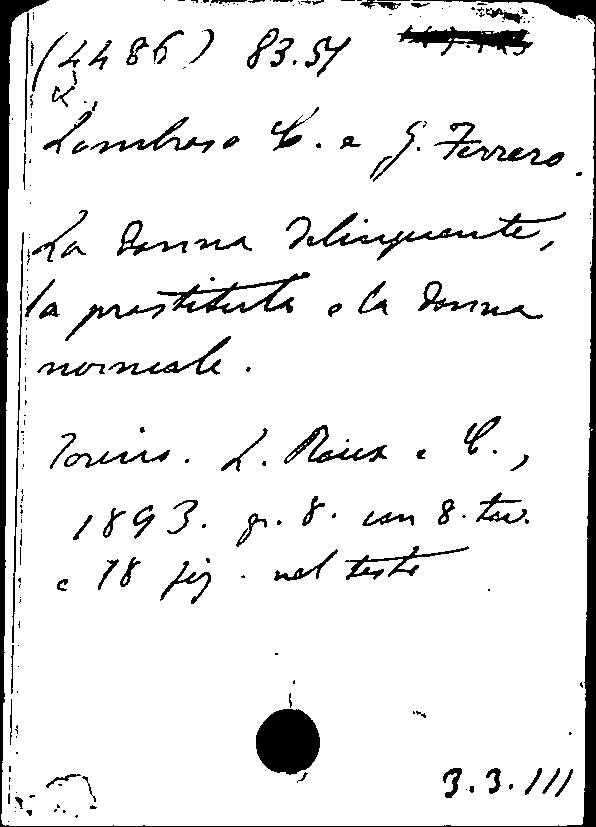 (4486) 83.51
Lombroso C. e G. Ferrero.
La donna delinquente,
la prostituta e la donna
normale.
Torino. L. Roux e C.,
1893. gr. 8. con 8. tav.
e 18 fig. nel testo
3.3.III